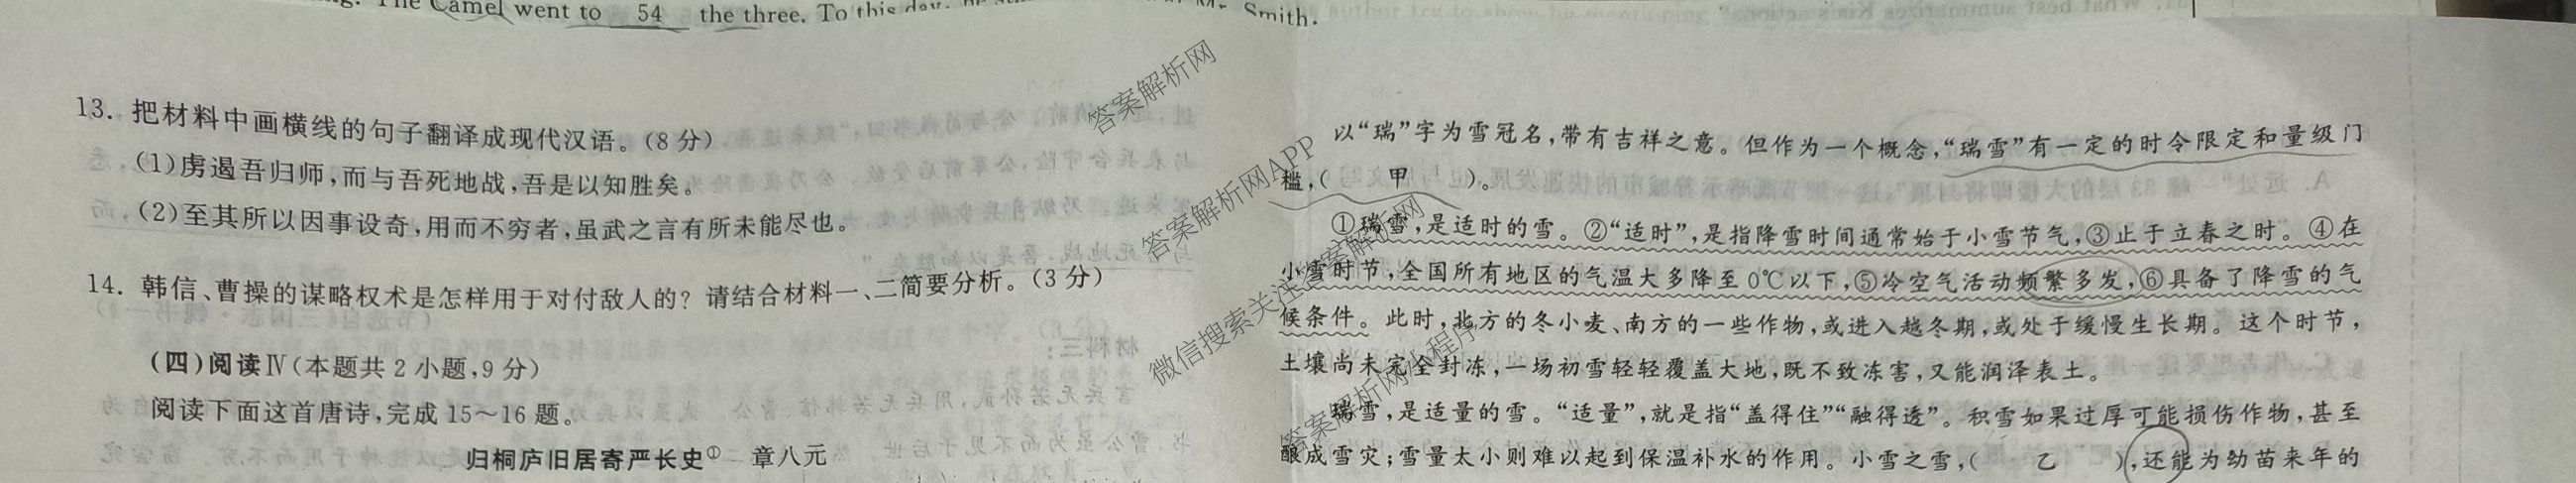 Camel went to 54 the three. To this day,
Smith.
13. 把材料中画横线的句子翻译成现代汉语。(8分)
(1)虏遏吾归师,而与吾死地战,吾是以知胜矣。
(2)至其所以因事设奇,用而不穷者,虽武之言有所未能尽也。
14. 韩信、曹操的谋略权术是怎样用于对付敌人的?请结合材料一、二简要分析。(3分)
(四)阅读Ⅳ(本题共2小题,9分)
阅读下面这首唐诗,完成15~16题。
归桐庐旧居寄严长史① 章八元
以“瑞”字为雪冠名,带有吉祥之意。但作为一个概念,“瑞雪”有一定的时令限定和量级门
槛,( 甲 )。
①瑞雪,是适时的雪。②“适时”,是指降雪时间通常始于小雪节气,③止于立春之时。④在
小雪时节,全国所有地区的气温大多降至0℃以下,⑤冷空气活动频繁多发,⑥具备了降雪的气
候条件。此时,北方的冬小麦、南方的一些作物,或进入越冬期,或处于缓慢生长期。这个时节,
土壤尚未完全封冻,一场初雪轻轻覆盖大地,既不致冻害,又能润泽表土。
瑞雪,是适量的雪。“适量”,就是指“盖得住”“融得透”。积雪如果过厚可能损伤作物,甚至
酿成雪灾;雪量太小则难以起到保温补水的作用。小雪之雪,( 乙 ),还能为幼苗来年的
答案解析网
答案解析网APP
微信搜索关注答案解析网
答案解析网小程序